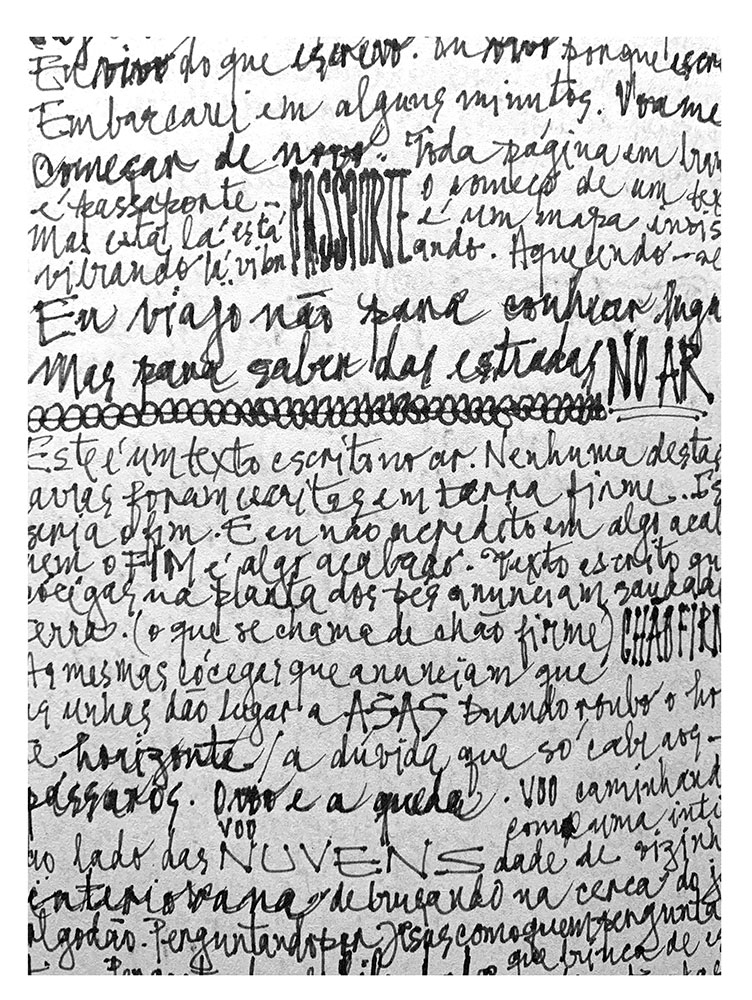 Eu vivo do que escrevo. Ou vivo porque escre
Embarcarei em alguns minutos. Voame
Começar de novo. Toda página em bran
é passaporte - PASSAPORTE o começo de um tex
Mas está lá está é um mapa invis
vibrando lá vibr ando. Aquecendo-se
Eu viajo não para conhecer luga
Mas para saber das estradas NO AR.
Este é um texto escrito no ar. Nenhuma destas
avras foram escritas em terra firme. Es
seria o fim. E eu não acredito em algo acab
nem o FIM é algo acabado. Texto escrito qu
cócegas na planta dos pés anunciam saudad
terra. (o que se chama de chão firme) CHÃO FIRM
As mesmas cócegas que anunciam que
as unhas dão lugar a ASAS Quando roubo o ho
e horizonte / a dúvida que só cabe aos -
pássaros. O voo e a queda. VOO caminhand
VOO como uma inti
ao lado das NUVENS dade de vizinh
interiorana debruçando na cerca do j
algodão. Perguntando por Jesus como quem pergunta
que brinca de es